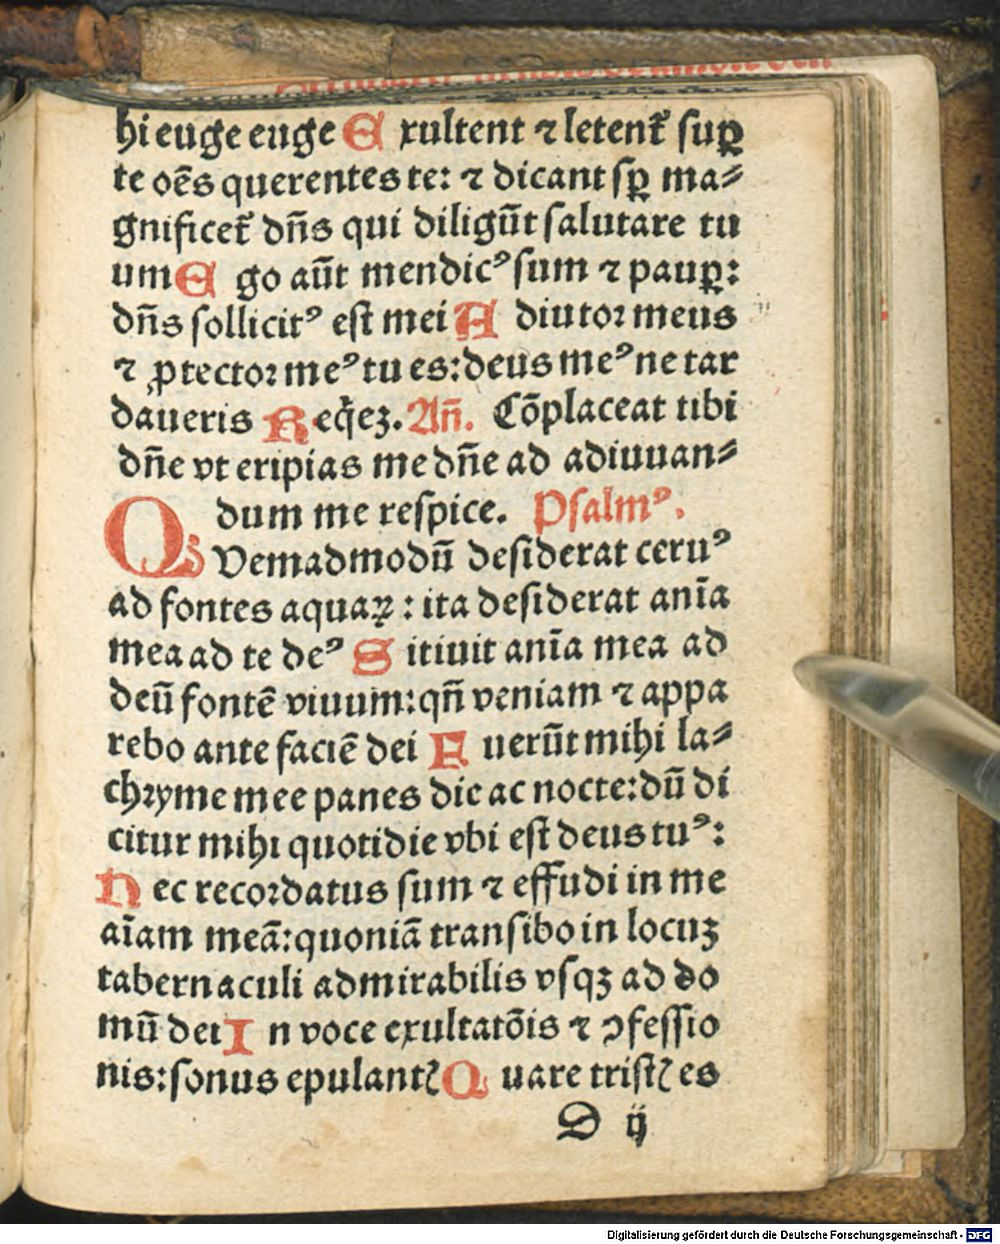 hi euge euge Exultent ⁊ letent᷑ suꝑ
te oēs querentes te: ⁊ dicant sꝑ ma⸗
gnificet᷑ dñs qui diligūt salutare tu
um Ego aūt mendicꝰ sum ⁊ pauꝑ:
dñs sollicitꝰ est mei Adiutor meus
⁊ ꝓtector meꝰ tu es: deus meꝰ ne tar
daueris Req̄ez. Añ. Cōplaceat tibi
dñe vt eripias me dñe ad adiuuan⸗
dum me respice. Psalmꝰ.
QVemadmodū desiderat ceruꝰ
ad fontes aquaꝝ: ita desiderat anīa
mea ad te deꝰ Sitiuit anīa mea ad
deū fontē viuum: qñ veniam ⁊ appa
rebo ante faciē dei Fuerūt mihi la⸗
chryme mee panes die ac nocte: dū di
citur mihi quotidie vbi est deus tuꝰ:
Nec recordatus sum ⁊ effudi in me
aīam meā: quoniā transibo in locuꝫ
tabernaculi admirabilis vsqꝫ ad do
mū dei In voce exultatōis ⁊ ꝯfessio
nis: sonus epulantꝭ Quare tristꝭ es
D ij
Digitalisierung gefördert durch die Deutsche Forschungsgemeinschaft - DFG